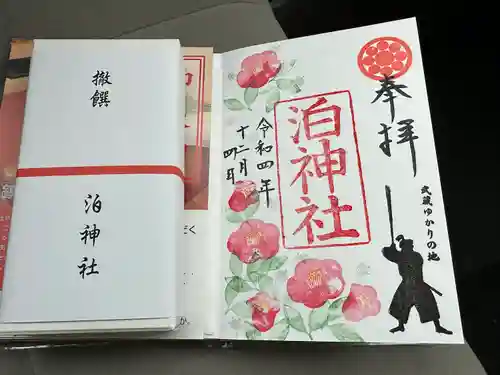 撤饌
泊神社
奉拝
武蔵ゆかりの地
泊神社
令和四年
十二月
四日
だく